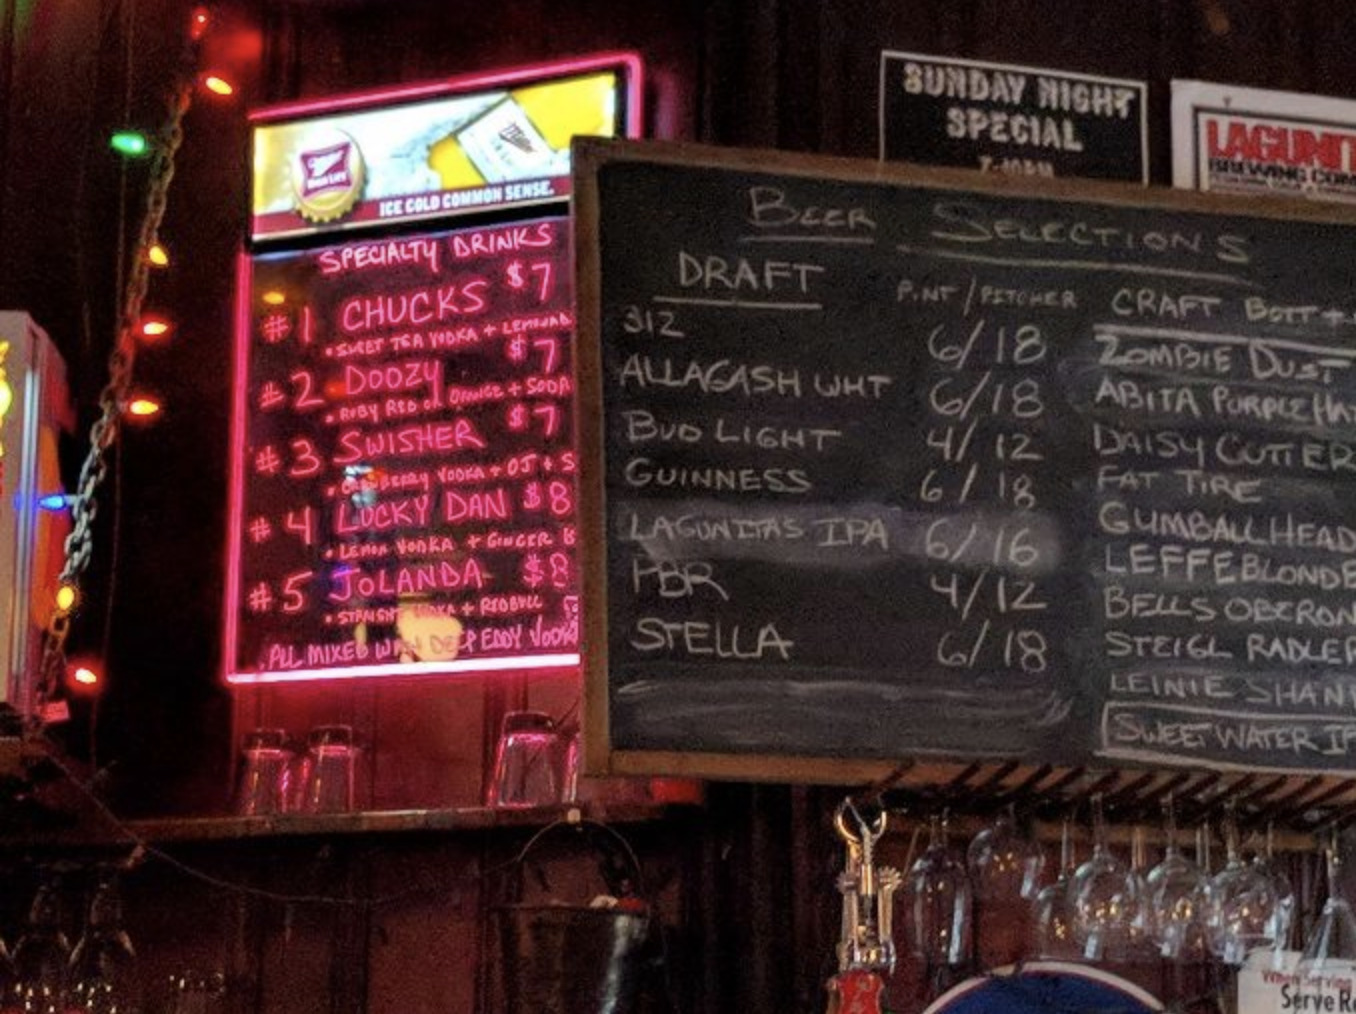 Miller
HIGH LIFE
Miller
HIGH LIFE
ICE COLD COMMON SENSE.
SPECIALTY DRINKS
#1 CHUCKS $7
• SWEET TEA VODKA + LEMONAD
#2 DOOZY $7
• RUBY RED OR ORANGE + SODA
#3 SWISHER $7
VODKA + OJ + S
#4 LUCKY DAN $8
• LEMON VODKA + GINGER B
#5 JOLANDA $8
• STRAIGHT VODKA + REDBULL
ALL MIXED WITH DEEP EDDY VODKA
SUNDAY NIGHT
SPECIAL
LAGUNIT
BREWING COM
BEER SELECTIONS
DRAFT PINT/PITCHER
312 6/18
ALLAGASH WHT 6/18
BUD LIGHT 4/12
GUINNESS 6/18
LAGUNITAS IPA 6/16
PBR 4/12
STELLA 6/18
CRAFT BOTT +
ZOMBIE DUST
ABITA PURPLE HA
DAISY CUTTER
FAT TIRE
GUMBALL HEAD
LEFFE BLONDE
BELLS OBERON
STEIGL RADLER
LEINIE SHAN
SWEET WATER IP
When Serving
Serve R